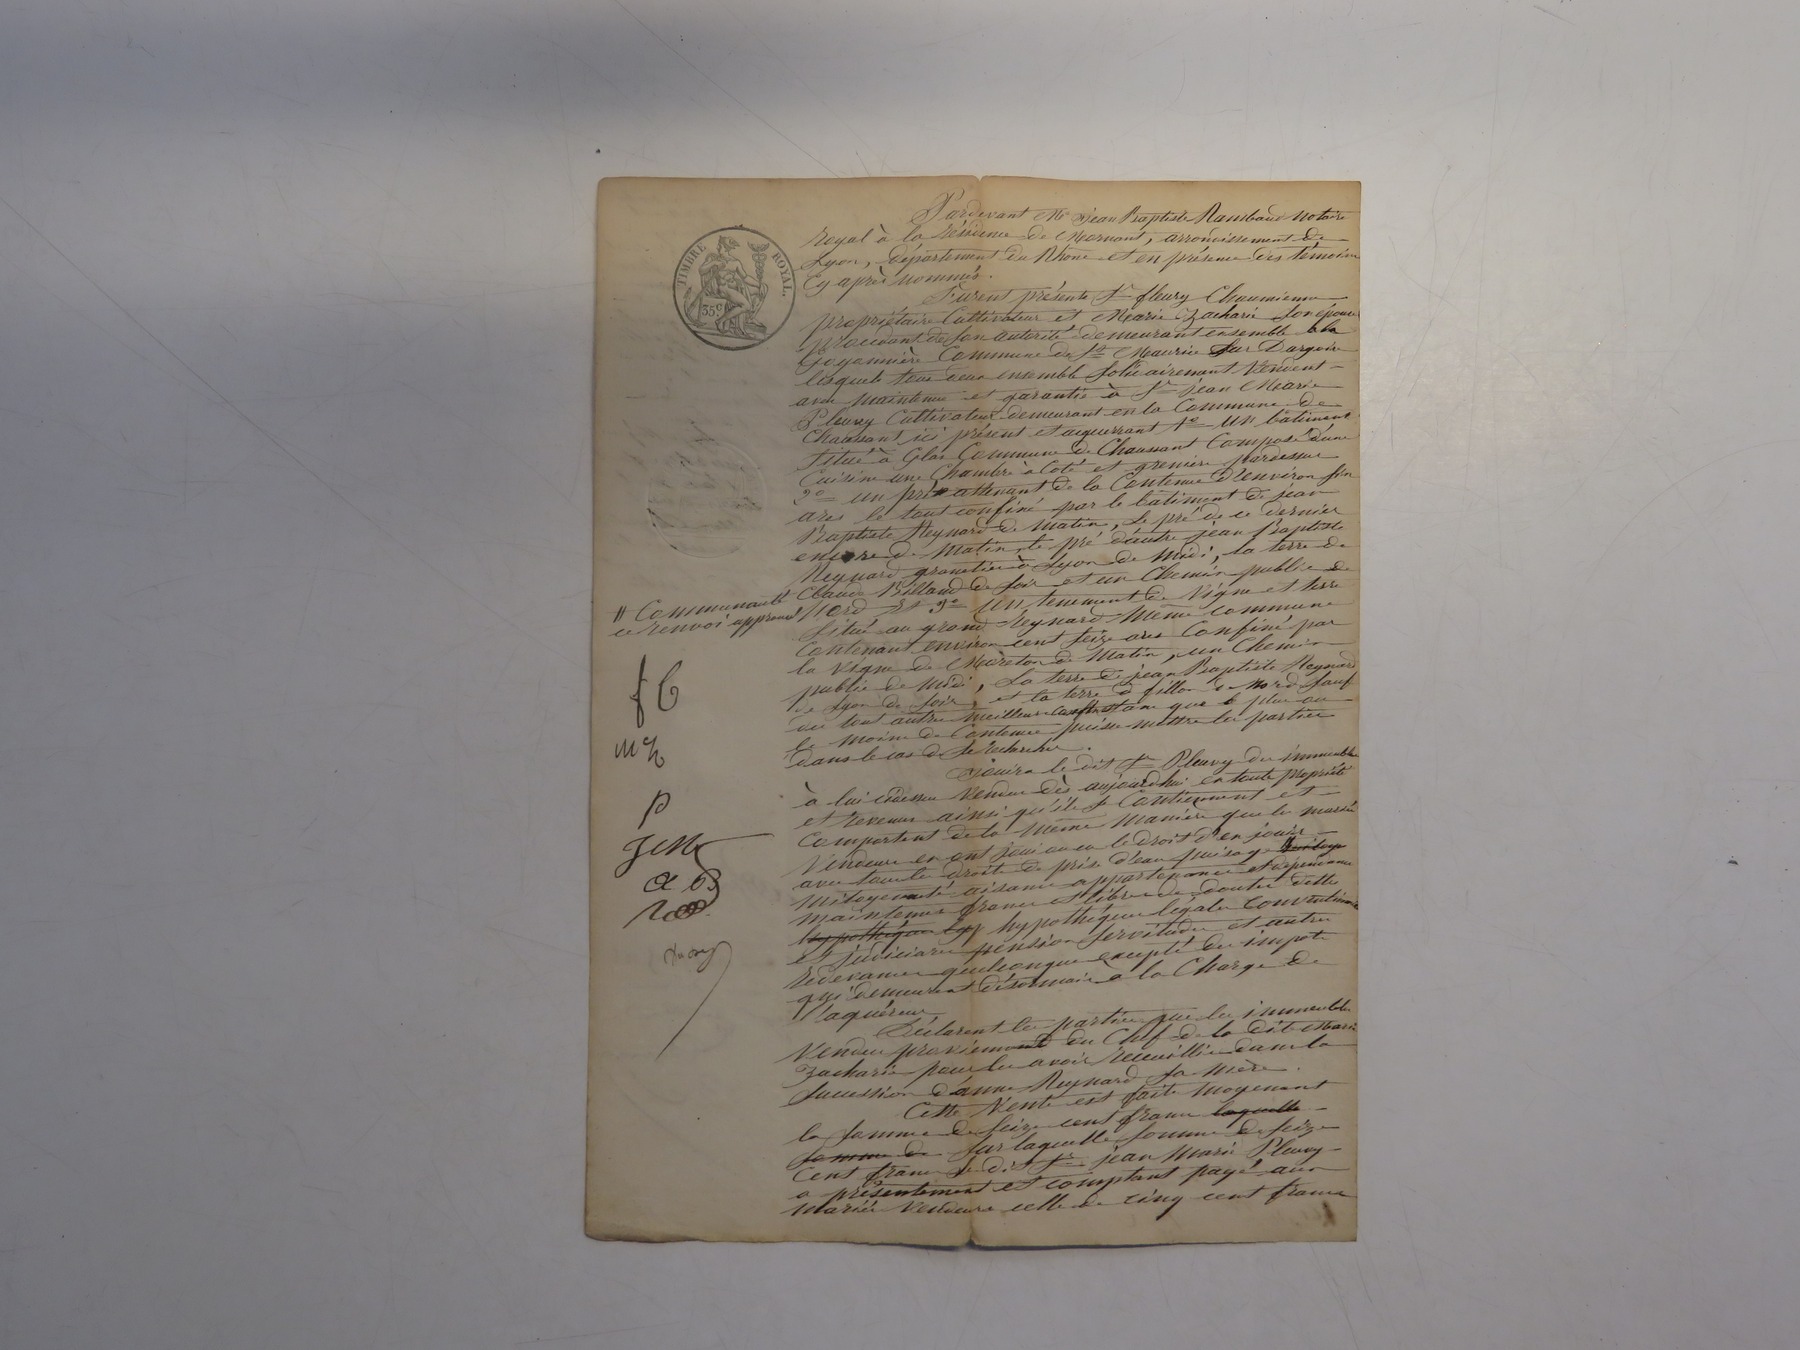 TIMBRE ROYAL.
35 c.
Pardevant Me Jean Baptiste Rambaud notaire
royal à la résidence de Mornant, arrondissement de
Lyon, département du Rhône et en présence des témoins
cy après nommés.
Furent présents Sr fleury Chaumienne
propriétaire Cultivateur et Marie Zacharie son épouse
procédant de son autorité demeurant ensemble à la
Goyonnière Commune de St Maurice Sur Dargoire
lesquels tous deux ensemble solidairement Vendent
avec maintenue et garantie à Sr jean Marie
Pleuvy Cultivateur demeurant en la Commune de
Chaussant ici présent et acquerrant 1o un bâtiment
situé à Glas Commune de Chaussant Composé d'une
Cuisine une Chambre à Coté et greniers pardessus
2o un pré attenant de la Contenue d'environ six
ares le tout confiné par le bâtiment de jean
Baptiste Reynard de matin, le pré de ce dernier
encore de matin, le pré d'autre jean Baptiste
Reynard grenetier à Lyon de midi, la terre de
Claude Billand de soir et un Chemin public de
Nord Et 3o un tenement de Vigne et terre
situé au grand Reynard Même commune
Contenant environ cent seize ares Confiné par
la vigne de Moreton de Matin, un Chemin
public de midi, La terre de jean Baptiste Reynard
de Lyon de soir, et la terre de fillon de Nord sauf
du tout autres meilleurs confins et sans que le plus ou
le moins de Contenue puisse mettre les parties
dans le cas de se rechercher.
Jouira le dit Sr Pleuvy des immeubles
à lui cidessus Vendus dès aujourdhui en toute propriété
et revenus ainsi qu'ils se Contiennent et
Comportent de la même manière que les mariés
Vendeurs en ont joui ou eu le droit d'en jouir
avec tous les droits de prise d'eau puisage //
mitoyenneté aisances appartenances et dépendances
maintenus francs et libres de toutes dettes
hypothèques hypothèques légales conventionnelles
et judiciaires pensions servitudes et autres
redevances quelconques excepté des impots
qui demeurent désormais à la Charge de
l'aquéreur
Déclarent les parties que les immeubles
Vendus proviennent du Chef de la dite Marie
Zacharie pour les avoir recueillis dans la
succession d'anne Reynard sa mère.
Cette Vente est faite moyenant
la somme de seize cent francs laquelle
somme de sur laquelle somme de seize
Cent francs le dit Sr jean Marie Pleuvy
a présentement et comptant payé aux
mariés Vendeurs celle de cinq cent francs
// Communauté
ce renvoi approuvé
f C
m Z
p